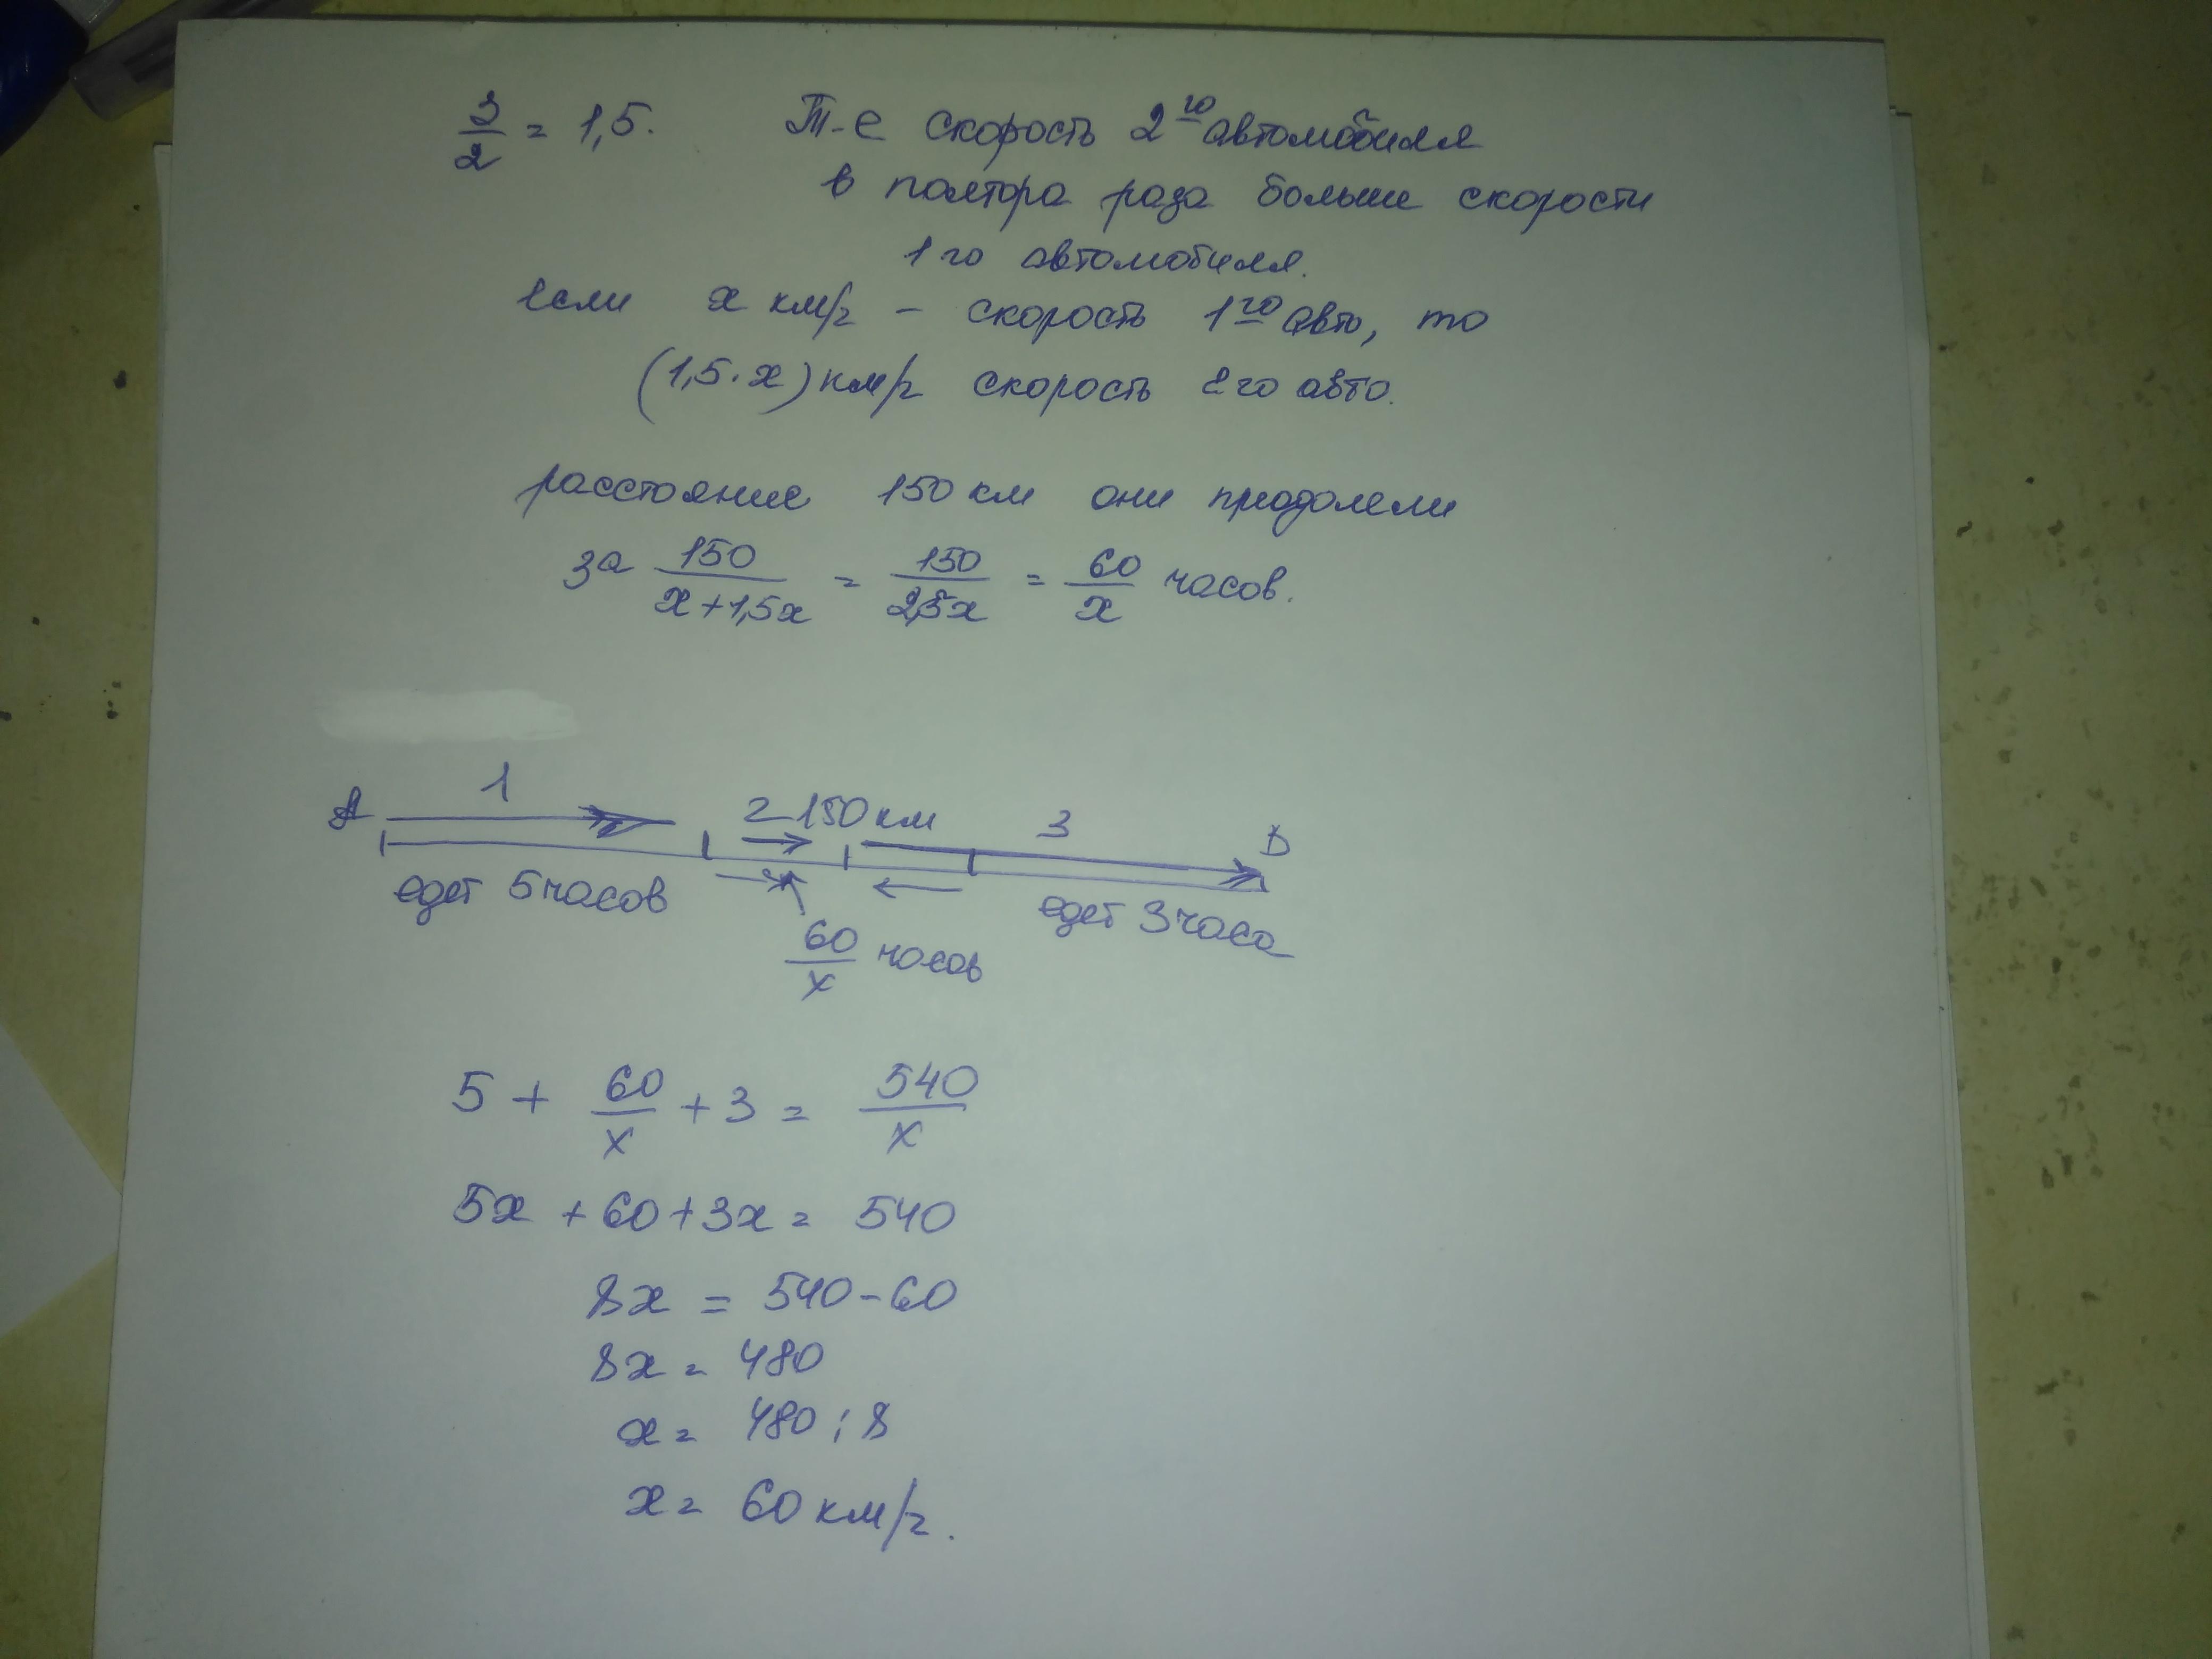 3/2 = 1,5. Т-е скорость 2го автомобиля
в полтора раза больше скорости
1го автомобиля.
если x км/ч – скорость 1го авто, то
(1,5·x) км/ч скорость 2го авто.
расстояние 150 км они преодолели
за 150/(x+1,5x) = 150/2,5x = 60/x часов.
A 1 2 150 км 3 B
едет 5 часов едет 3 часа
60/x часов
5 + 60/x + 3 = 540/x
5x + 60 + 3x = 540
8x = 540 - 60
8x = 480
x = 480 : 8
x = 60 км/ч.